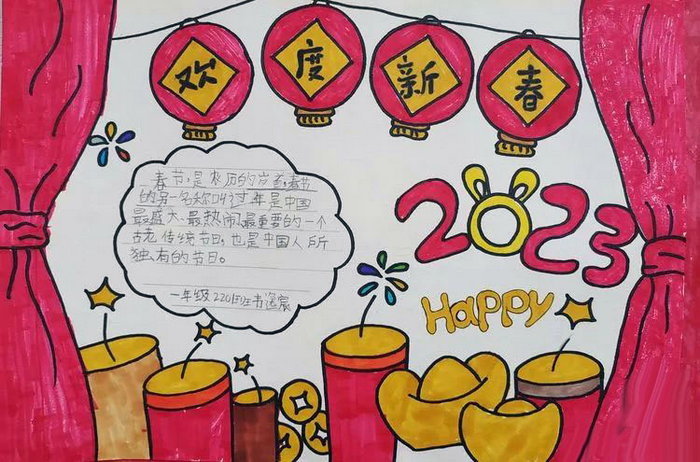 欢度新春
春节,是农历的岁首,春节
的另一名称叫过年是中国
最盛大、最热闹、最重要的一个
古老传统节日,也是中国人所
独有的节日。
一年级220班
2023
HAPPY